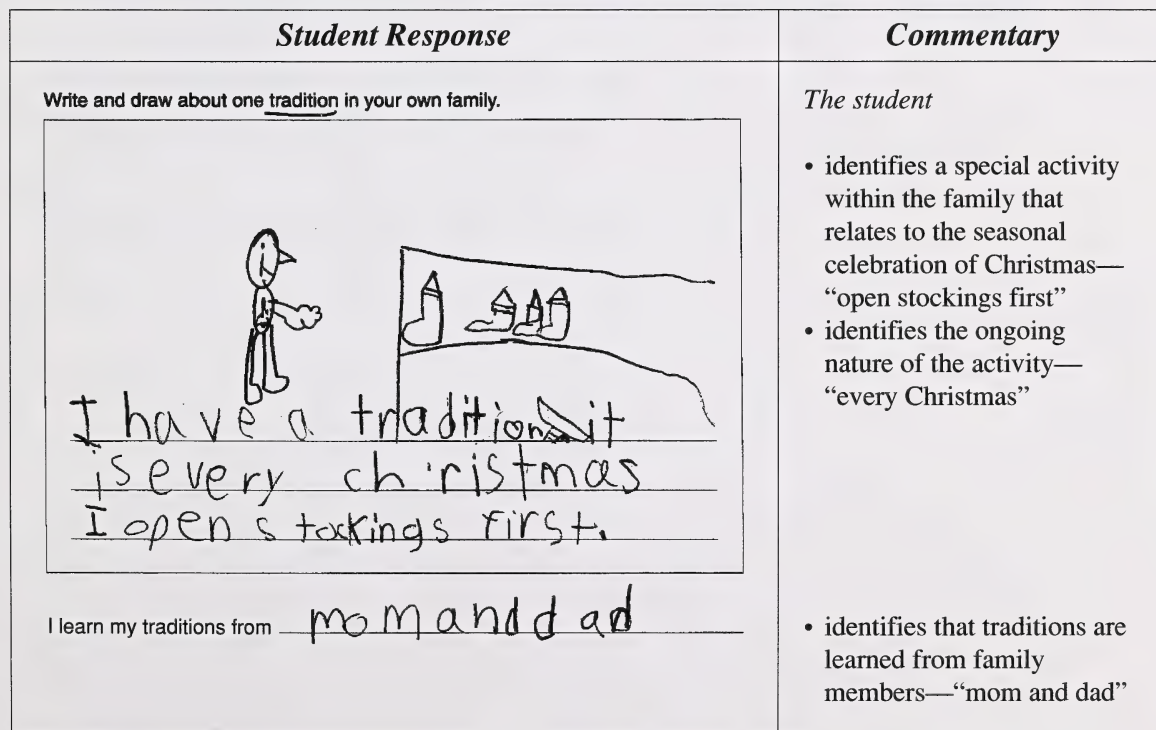 Student Response
Write and draw about one tradition in your own family.
I have a tradition it
is every christmas
I open stockings first.
I learn my traditions from mom and dad
Commentary
The student
• identifies a special activity
within the family that
relates to the seasonal
celebration of Christmas—
“open stockings first”
• identifies the ongoing
nature of the activity—
“every Christmas”
• identifies that traditions are
learned from family
members—“mom and dad”